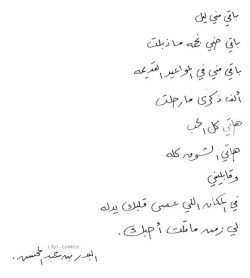 باقي مني ليل
باقي حبي نجمه ما ذبلت
باقي مني في المواعيد القديمه
ألف ذكرى ما رحلت
هاتي كل الحب
هاتي الشوق كله
وقابليني
في المكان اللي عسى قلبك يدله
لي زمن ما قلت أحبك.
البدر بن عبد المحسن.